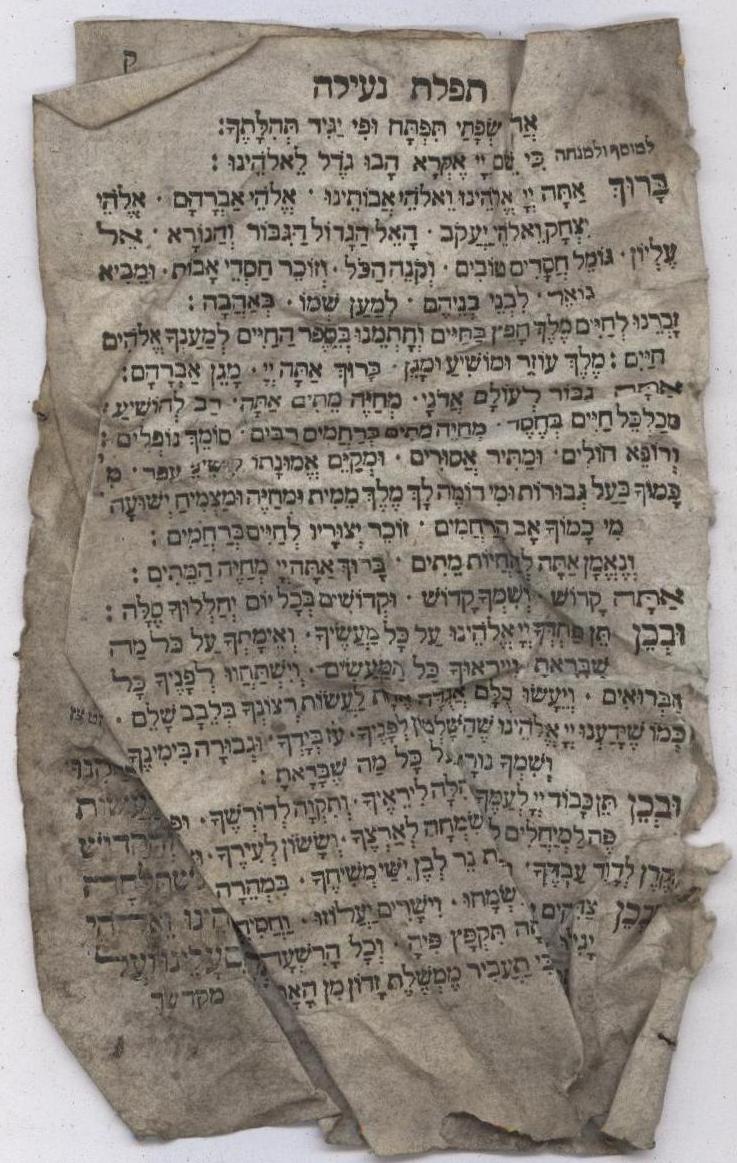 ק
תפלת נעילה
אד שְׂפָתַי תִּפְתָּח וּפִי יַגִּיד תְּהִלָּתֶךָ:
למוסף ולמנחה כִּי שֵׁם יְיָ אֶקְרָא הָבוּ גֹדֶל לֵאלֹהֵינוּ:
בָּרוּךְ אַתָּה יְיָ אֱלֹהֵינוּ וֵאלֹהֵי אֲבוֹתֵינוּ · אֱלֹהֵי אַבְרָהָם · אֱלֹהֵי
יִצְחָק וֵאלֹהֵי יַעֲקֹב · הָאֵל הַגָּדוֹל הַגִּבּוֹר וְהַנּוֹרָא · אֵל
עֶלְיוֹן · גּוֹמֵל חֲסָדִים טוֹבִים · וְקֹנֵה הַכֹּל · וְזוֹכֵר חַסְדֵי אָבוֹת · וּמֵבִיא
גוֹאֵל · לִבְנֵי בְנֵיהֶם · לְמַעַן שְׁמוֹ · בְּאַהֲבָה:
זָכְרֵנוּ לְחַיִּים מֶלֶךְ חָפֵץ בַּחַיִּים וְחָתְמֵנוּ בְּסֵפֶר הַחַיִּים לְמַעַנְךָ אֱלֹהִים
חַיִּים: מֶלֶךְ עוֹזֵר וּמוֹשִׁיעַ וּמָגֵן · בָּרוּךְ אַתָּה יְיָ · מָגֵן אַבְרָהָם:
אַתָּה גִּבּוֹר לְעוֹלָם אֲדֹנָי · מְחַיֵּה מֵתִים אַתָּה · רַב לְהוֹשִׁיעַ:
מְכַלְכֵּל חַיִּים בְּחֶסֶד · מְחַיֵּה מֵתִים בְּרַחֲמִים רַבִּים · סוֹמֵךְ נוֹפְלִים:
וְרוֹפֵא חוֹלִים · וּמַתִּיר אֲסוּרִים · וּמְקַיֵּם אֱמוּנָתוֹ לִישֵׁנֵי עָפָר · מִ
כָּמוֹךָ בַּעַל גְּבוּרוֹת וּמִי דוֹמֶה לָּךְ מֶלֶךְ מֵמִית וּמְחַיֶּה וּמַצְמִיחַ יְשׁוּעָה
מִי כָמוֹךָ אָב הָרַחֲמִים · זוֹכֵר יְצוּרָיו לְחַיִּים בְּרַחֲמִים:
וְנֶאֱמָן אַתָּה לְהַחֲיוֹת מֵתִים · בָּרוּךְ אַתָּה יְיָ מְחַיֵּה הַמֵּתִים:
אַתָּה קָדוֹשׁ · וְשִׁמְךָ קָדוֹשׁ · וּקְדוֹשִׁים בְּכָל יוֹם יְהַלְלוּךָ סֶּלָה:
וּבְכֵן תֵּן פַּחְדְּךָ יְיָ אֱלֹהֵינוּ עַל כָּל מַעֲשֶׂיךָ · וְאֵימָתְךָ עַל כָּל מַה
שֶּׁבָּרָאתָ וְיִירָאוּךָ כָּל הַמַּעֲשִׂים · וְיִשְׁתַּחֲווּ לְפָנֶיךָ כָּל
הַבְּרוּאִים · וְיֵעָשׂוּ כֻלָּם אֲגֻדָּה אַחַת לַעֲשׂוֹת רְצוֹנְךָ בְּלֵבָב שָׁלֵם ·
כְּמוֹ שֶׁיָּדַעְנוּ יְיָ אֱלֹהֵינוּ שֶׁהַשִּׁלְטוֹן לְפָנֶיךָ · עֹז בְּיָדְךָ · וּגְבוּרָה בִּימִינֶךָ
וְשִׁמְךָ נוֹרָא עַל כָּל מַה שֶּׁבָּרָאתָ:
וּבְכֵן תֵּן כָּבוֹד יְיָ לְעַמֶּךָ הִלָּה לִירֵאֶיךָ · וְתִקְוָה לְדוֹרְשֶׁךָ · וּפִ
פֶּה לַמְיַחֲלִים לָ שִׂמְחָה לְאַרְצֶךָ · וְשָׂשׂוֹן לְעִירֶךָ · וּ
קֶרֶן לְדָוִד עַבְדֶּךָ · ת נֵר לְבֶן יִשַׁי מְשִׁיחֶךָ · בִּמְהֵרָה
וּבְכֵן צַדִּיקִים שְׂמָחוּ · וִישָׁרִים יַעֲלוֹזוּ · וַחֲסִידִ הינו
יָגִילוּ תָה תִּקְפָּץ פִּיהָ · וְכָל הָרִשְׁעָה עלינו ועל
כִּי תַעֲבִיר מֶמְשֶׁלֶת זָדוֹן מִן הָאָ מקדשך